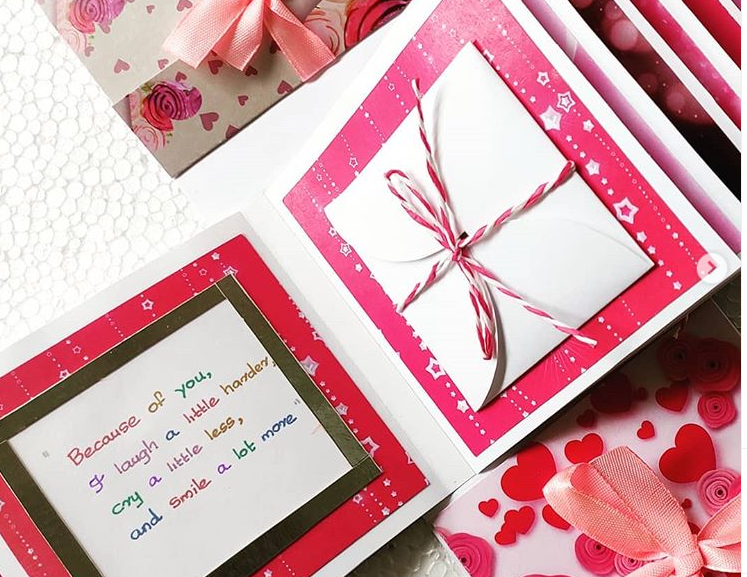 " Because of you,
I laugh a little harder,
cry a little less,
and smile a lot more"